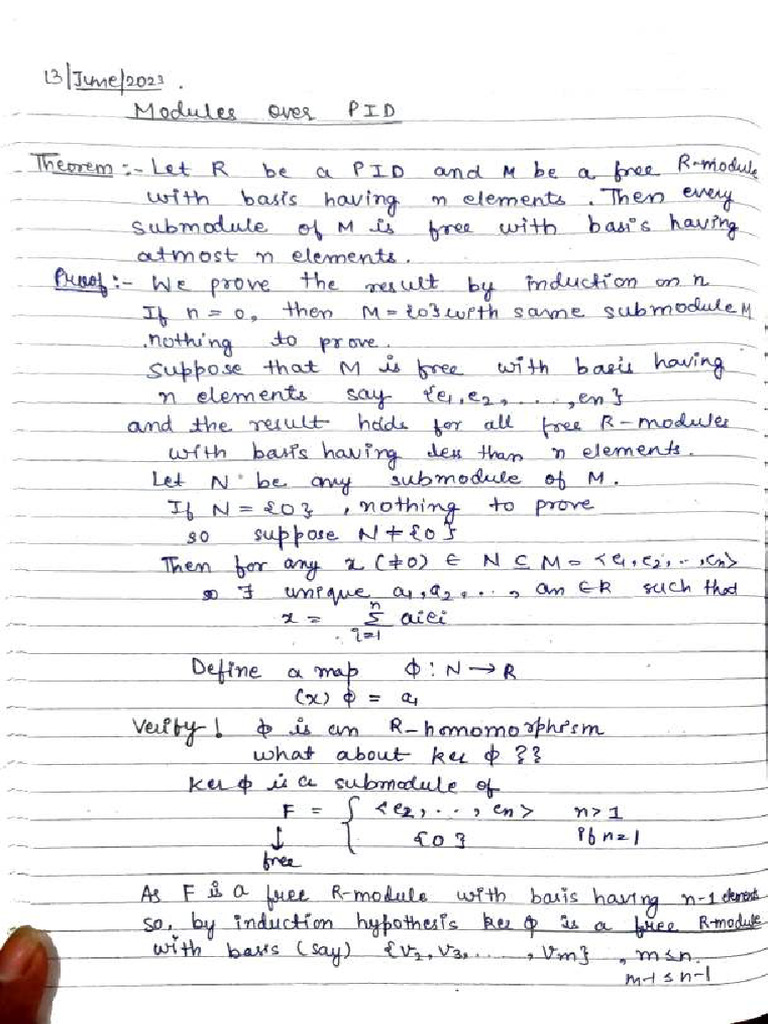 13/June/2023.
Modules over PID
Theorem :- Let R be a PID and M be a free R-module
with basis having n elements. Then every
submodule of M is free with basis having
atmost n elements.
Proof :- We prove the result by induction on n
If n = 0, then M = {0} with same submodule M
nothing to prove.
Suppose that M is free with basis having
n elements say {e₁, e₂, ...., eₙ}
and the result holds for all free R-modules
with basis having less than n elements.
Let N be any submodule of M.
If N = {0}, nothing to prove
so suppose N ≠ {0}
Then for any x (≠0) ∈ N ⊆ M = <e₁, e₂, .., eₙ>
so ∃ unique a₁, a₂, ..., aₙ ∈ R such that
x = Σⁿᵢ₌₁ aᵢeᵢ
Define a map Φ : N → R
(x) Φ = a₁
Verify! Φ is an R-homomorphism
what about ker Φ ??
ker Φ is a submodule of
F = { <e₂, .., eₙ> n>1
↓ {0} if n=1
free
As F is a free R-module with basis having n-1 elements
so, by induction hypothesis ker Φ is a free R-module
with basis (say) {v₂, v₃, ...., vₘ}, m≤n.
m-1 ≤ n-1